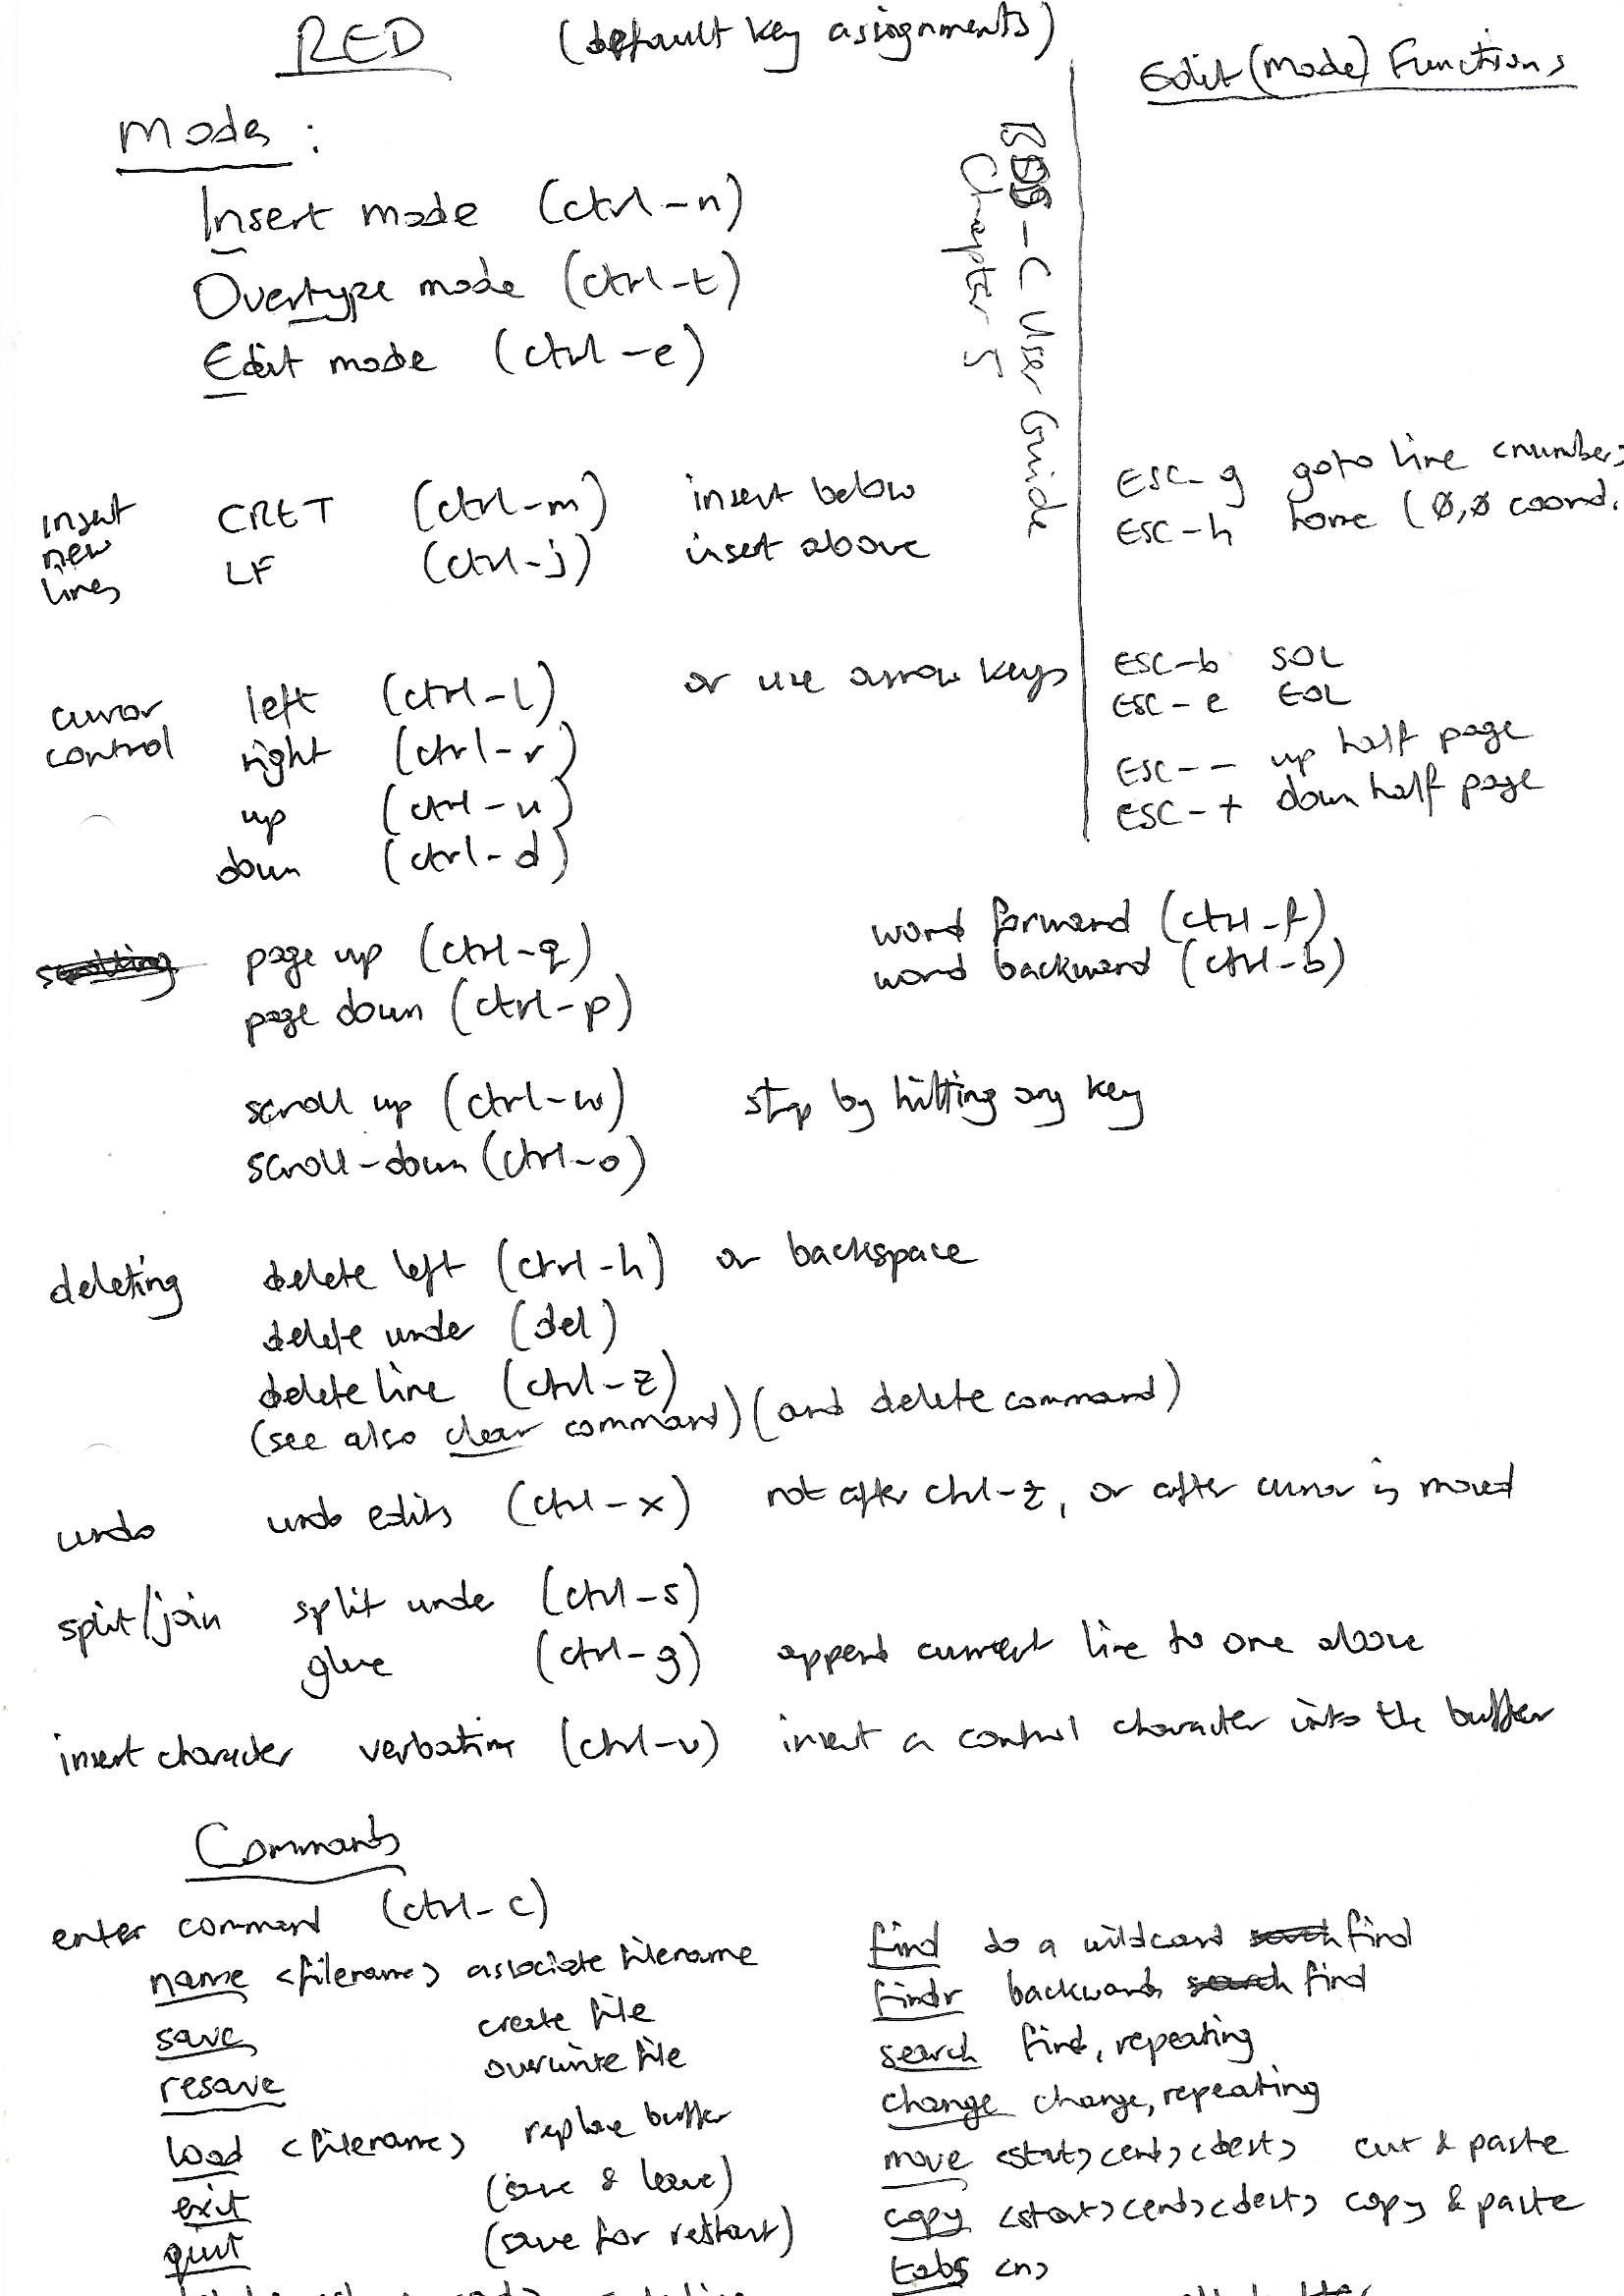 RED (default key assignments)
Edit (mode) Functions
Modes :
Insert mode (ctrl-n)
Overtype mode (ctrl-t)
Edit mode (ctrl-e)
BDS-C User Guide
Chapter 5
insert new lines
CRET (ctrl-m) insert below
LF (ctrl-j) insert above
ESC-g goto line <number>
ESC-h home (0,0 coord.
cursor control
left (ctrl-l) or use arrow keys
right (ctrl-r)
up (ctrl-u)
down (ctrl-d)
ESC-b SOL
ESC-e EOL
ESC-- up half page
ESC-+ down half page
scrolling page up (ctrl-q)
page down (ctrl-p)
word forward (ctrl-f)
word backward (ctrl-b)
scroll up (ctrl-w) stop by hitting any key
scroll-down (ctrl-o)
deleting delete left (ctrl-h) or backspace
delete under (del)
delete line (ctrl-z)
(see also clear command) (and delete command)
undo undo edits (ctrl-x) not after ctrl-z, or after cursor is moved
split/join split under (ctrl-s)
glue (ctrl-g) append current line to one above
insert character verbatim (ctrl-v) insert a control character into the buffer
Commands
enter command (ctrl-c)
name <filename> associate filename
save create file
resave overwrite file
load <filename> replace buffer
exit (save & leave)
quit (save for restart)
find do a wildcard search find
findr backwards search find
search find, repeating
change change, repeating
move <start> <end> <dest> cut & paste
copy <start> <end> <dest> copy & paste
tabs <n>